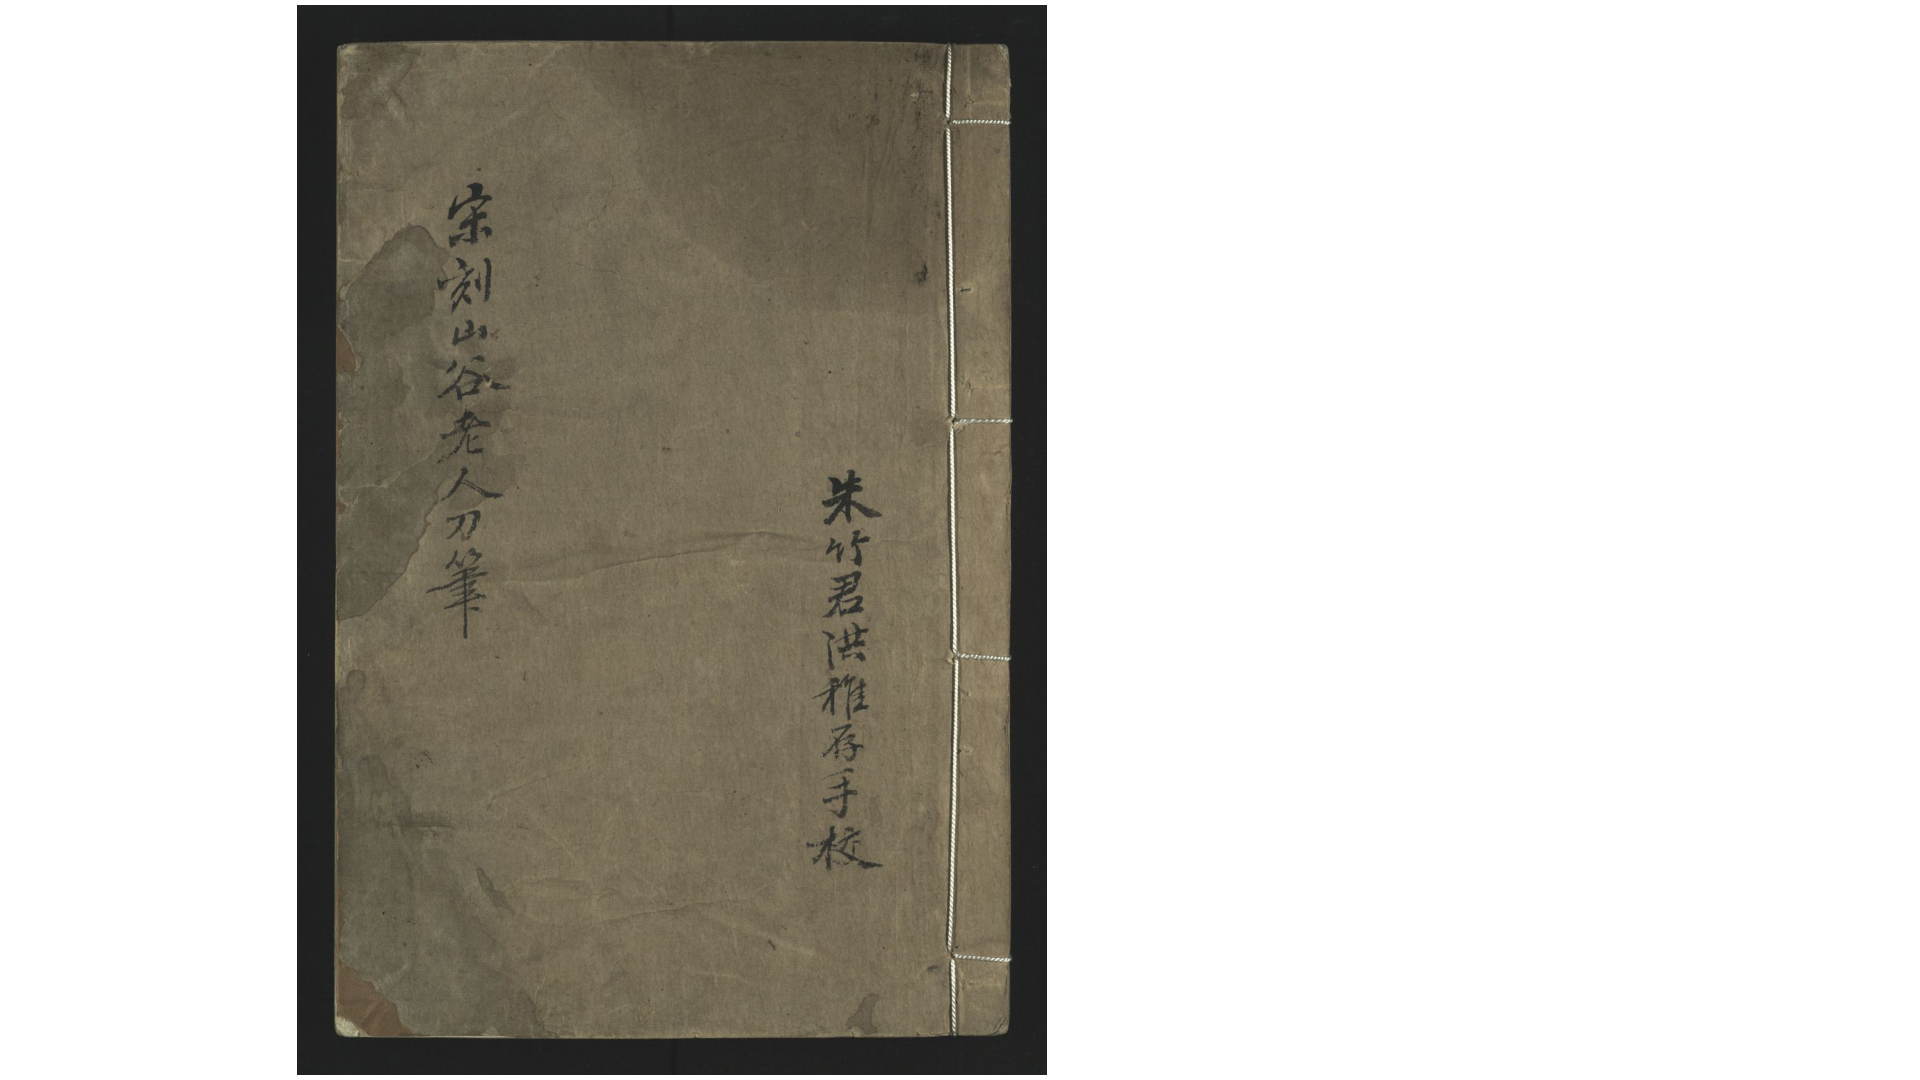 朱竹君洪稚存手校
宋刻山谷老人刀筆